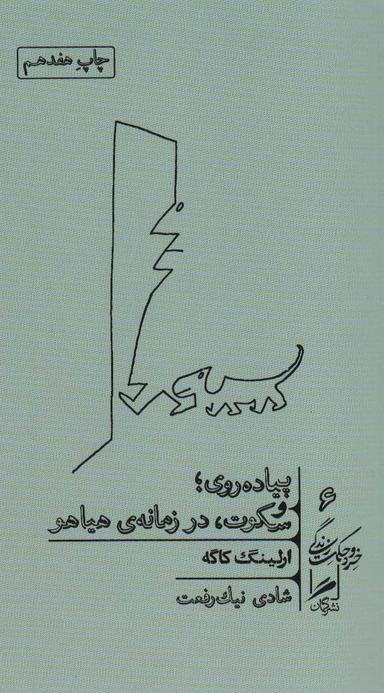 چاپِ هفدهم
پیاده‌روی؛
و
سکوت، در زمانه‌ی هیاهو
ارلینگ کاگه
شادی نیک‌رفعت
۶
خرد و حکمت زندگی
نشر گمان